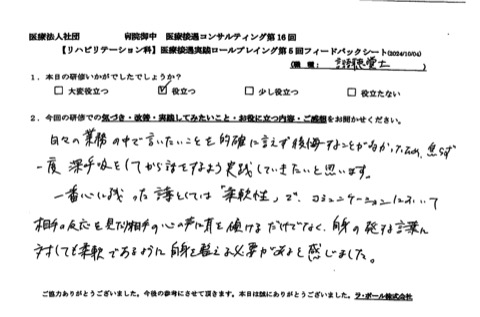 医療法人社団 病院御中 医療接遇コンサルティング第16回
【リハビリテーション科】医療接遇実践ロールプレイング第5回フィードバックシート(2024/10/04)
(職種: 言語聴覚士)
1. 本日の研修いかがでしたでしょうか?
□ 大変役立つ ☑ 役立つ □ 少し役立つ □ 役立たない
2. 今回の研修での気づき・改善・実践してみたいこと・お役に立つ内容・ご感想をお聞かせください。
日々の業務の中で言いたいことを的確に言えず後悔することが多かったため、焦らず
一度深呼吸をしてから話をするよう実践していきたいと思います。
一番心に残った言葉としては「柔軟性」で、コミュニケーションにおいて
相手の反応を見たり相手の心の声に耳を傾けるだけでなく、自身の発する言葉に
対しても柔軟であるように自身を整える必要があると感じました。
ご協力ありがとうございました。今後の参考にさせて頂きます。本日は誠にありがとうございました。ラ・ポール株式会社